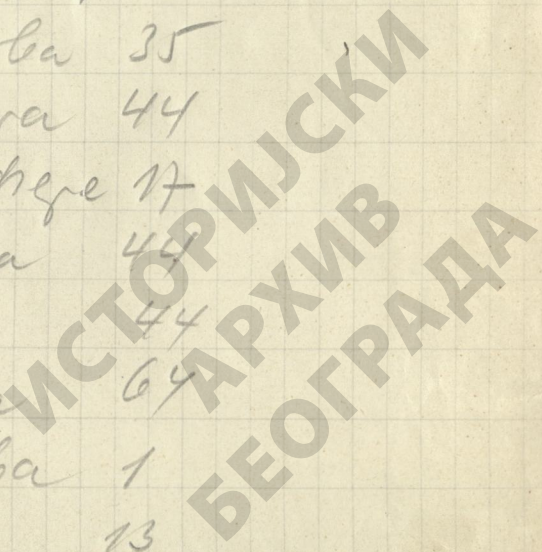 ва 35
га 44
17
а 44
44
64
ва 1
13
ИСТОРИЈСКИ
АРХИВ
БЕОГРАДА